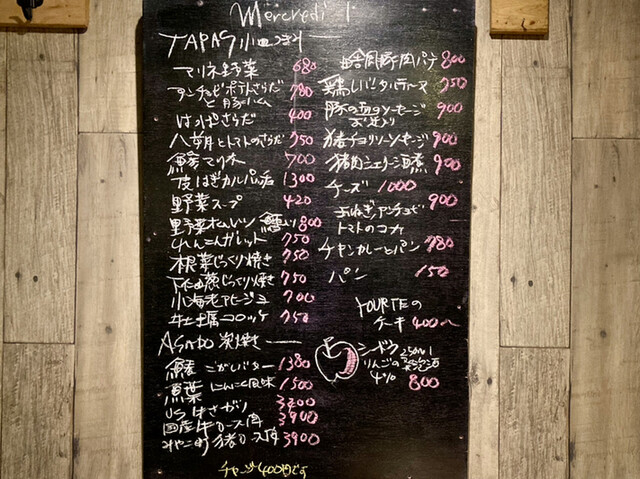 Mercredi 1
TAPAS 小皿つまみ
マリネ野菜 680
アンチョビポテトさらだ 780
と豚ハム
はっぱさらだ 400
八朔とトマトのさらだ 750
マリネ 700
皮はぎカルパッチョ 1300
野菜スープ 420
野菜オムレツ 鱈入り 800
れんこんガレット 750
根菜じっくり焼き 750
下仁田葱じっくり焼き 750
小海老アヒージョ 700
牡蠣コロッケ 750
ASADO 炭焼き
こがしバター 1380
にんにく風味 1500
US牛さがり 3200
国産牛ロース肉 3900
みやこ町 猪ロース肉 3900
チャージ400円です
田舎風豚肉パテ 800
鶏レバータルティーヌ 750
豚の ソーセージ 900
猪チョリソーソーセージ 900
猪肉シェリー酒煮 900
チーズ 1000
玉ねぎ、アンチョビ 900
トマトのコカ
チキンカレーとパン 780
パン 150
YOURTEの
ケーキ 400〜
シードル 250ml
りんごの発泡酒
4% 800